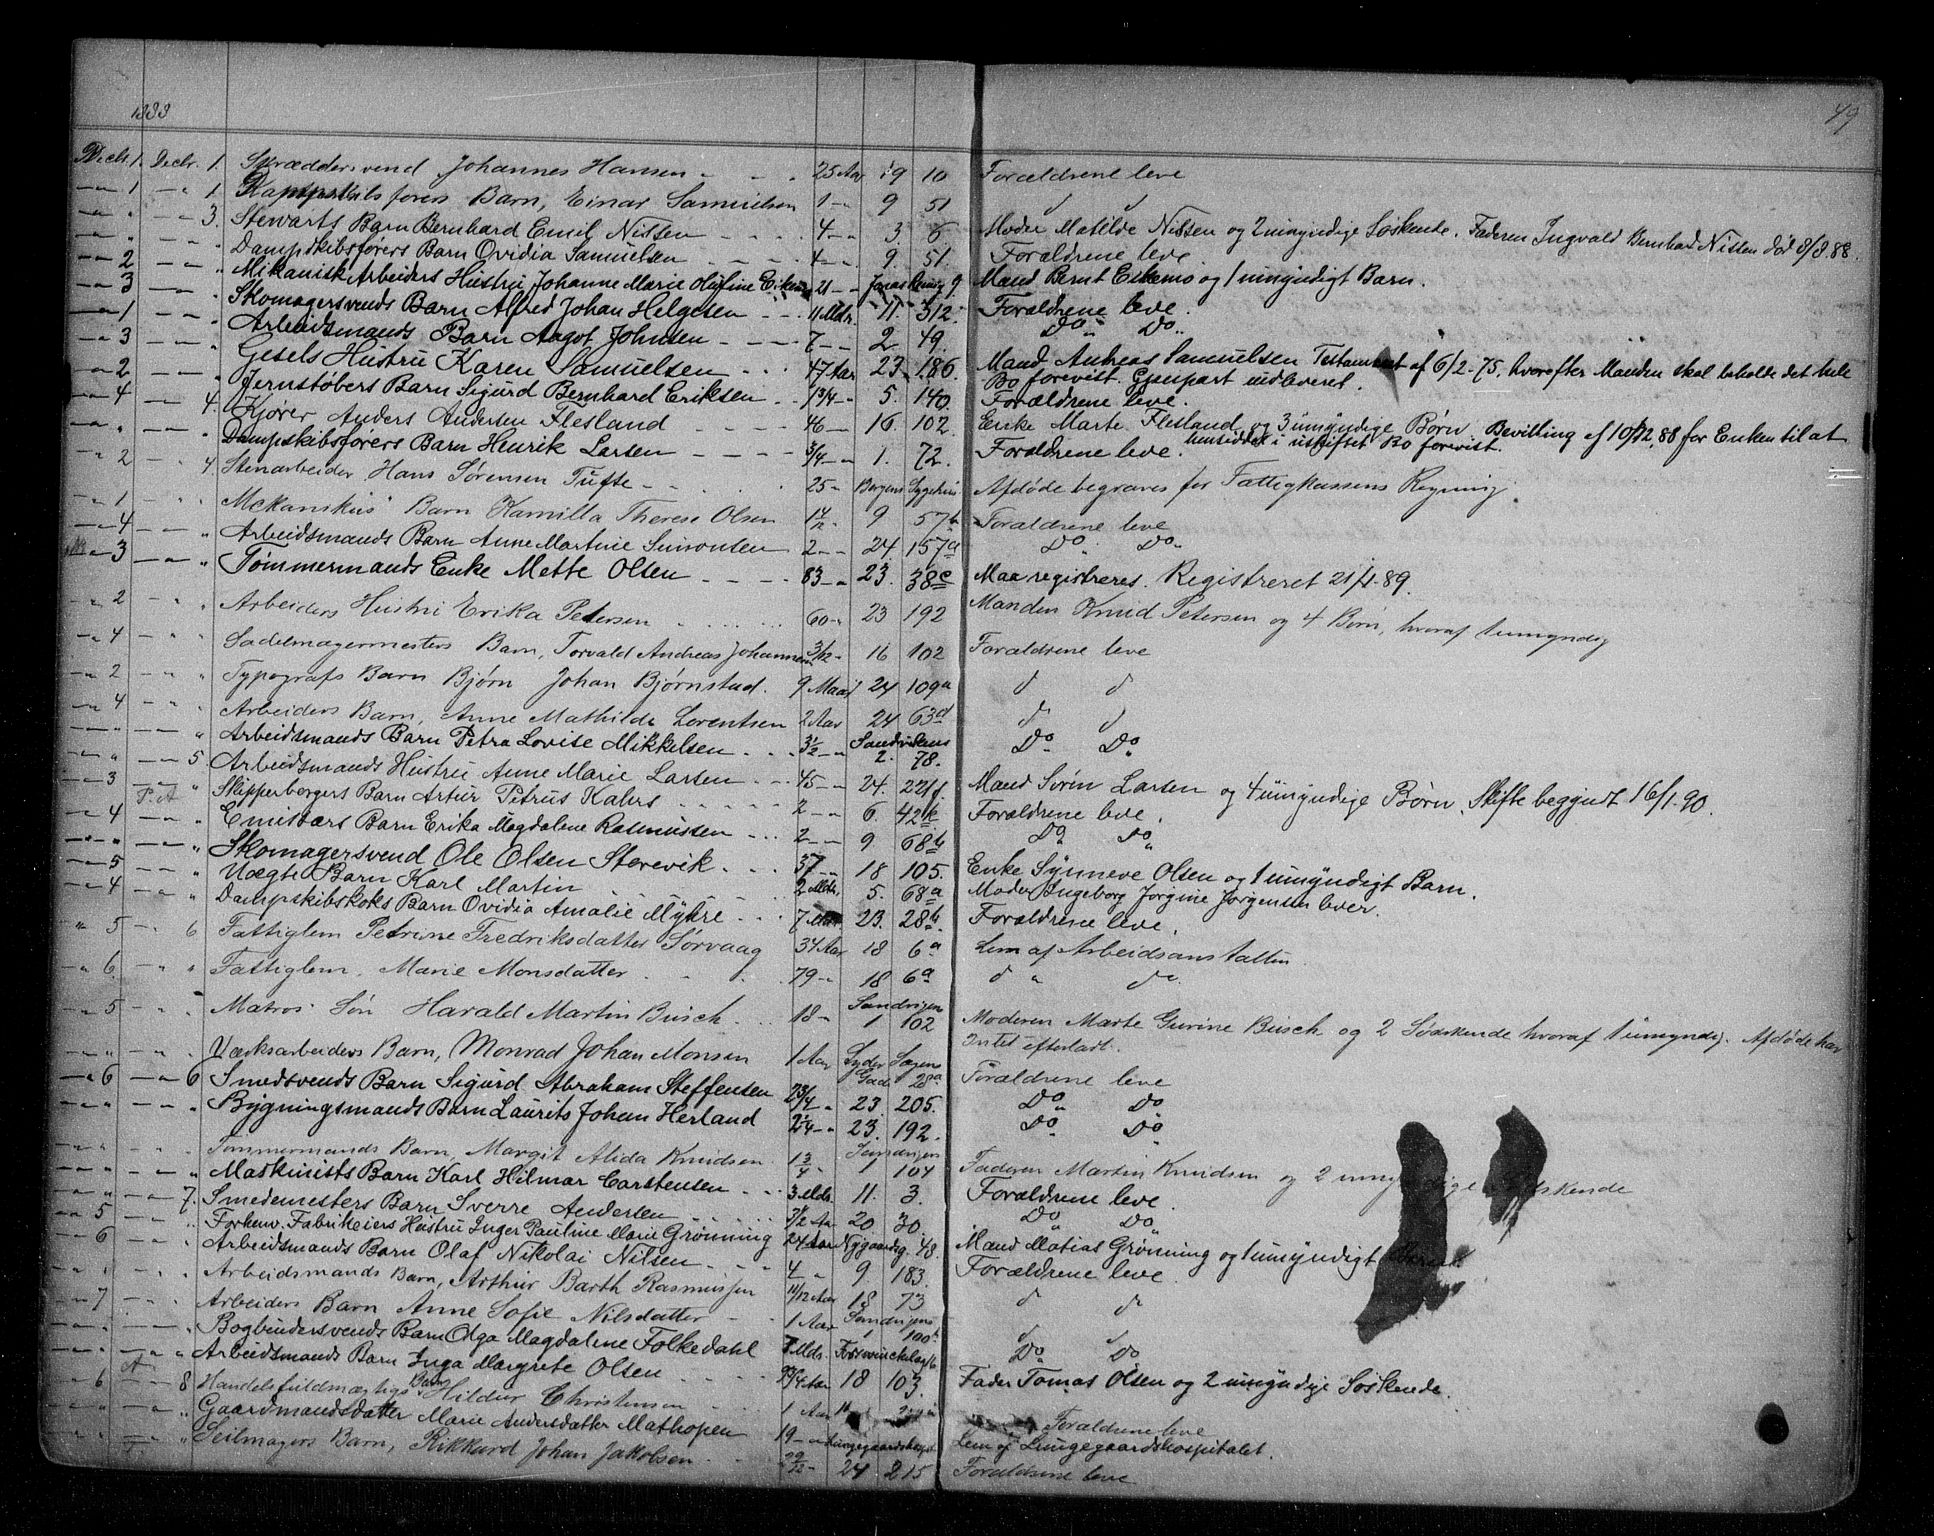 1888
49
Decbr. 1. Decbr. 1. Skræddersvend Johannes Hansen - - - 25 Aar 19 10 Forældrene leve
-"- 1 -"- 1. førers Barn, Einar Samuelsen 1-"- 9 51 d d
-"- " -"- 3. Stewarts Barn Bernhard Emil Nilsen - - - 4-"- 3. 6 Moder Matilde Nilsen og 2 umyndige Søskende. Faderen Ingvald Bernhad Nilsen død 8/8.88.
-"- " -"- " Dampskibsførers Barn Ovidia Samuelsen - - - 4-"- 9. 51. Forældrene leve.
-"- 2 -"- " Mikanisk Arbeiders Hustru Johanne Marie Olufine 21-"- Mand Bernt Eikemo og 1 umyndigt Barn.
-"- 3 -"- " Skomagersvends Barn Alfred Johan Helgesen - - 11 Mdr. 11. 312. Forældrene leve.
-"- 1 -"- " Arbeidsmands Barn Aagot Johnsen - - - 7-"- 2 49. Do Do
-"- 3 -"- " Gesels Hustru Karen Samuelsen - - - 47 Aar 23. 186. Mand Andreas Samuelsen Testament af 6/2-75, hvorefter Manden skal beholde det hele
Bo forevist. Gjenpart udleveret.
-"- 2 -"- " Jernstøbers Barn Sigurd Bernhard Eriksen - - 1 3/4-"- 5. 140. Forældrene leve.
-"- 4 -"- 4. Kjører Anders Andersen Flesland - - - 46-"- 16. 102. Enke Marte Flesland og 3 umyndige Børn. Bevilling af 10/12.88 for Enken til at
hensidde i uskiftet Bo forevist.
-"- " -"- " Dampskibsførers Barn Henrik Larsen - - - 3/4-"- 1. 72. Forældrene leve.
-"- 2 -"- 4. Stenarbeider Hans Sørensen Tufte - - - 25-"- Bergens Sygehus Afdøde begraves for Fattigkassens Regning.
-"- 1 -"- " Mekanikus' Barn Kamilla Therese Olsen 1 4/12-"- 9 57b Forældrene leve
-"- 4 -"- " Arbeidsmands Barn Anne Martine Simonsen 2-"- 24. 157a Do Do
-"- 3 -"- " Tømmermands Enke Mette Olsen - - - 83-"- 23. 38c Maa registreres. Registreret 21/1.89.
-"- 2 -"- " Arbeiders Hustru Erika Petersen - - - 60-"- 23 192 Manden Knud Petersen og 4 Børn, hvoraf 1 umyndig
-"- 4 -"- " Sadelmagermesters Barn, Torvald Andreas Johannesen 3/12-"- 16 102 Forældrene leve
-"- 2 -"- " Typografs Barn Bjørn Johan Bjørnstad. 9 Maad 24 109a d d
-"- 4 -"- " Arbeiders Barn, Anne Mathilde Lorentsen 2 Aar 24 63d d d
-"- " -"- " Arbeidsmands Barn Petra Lovise Mikkelsen - - 3 1/2-"- Sandvikens 2. 78. Do Do
-"- " -"- 5 Arbeidsmands Hustru Anne Marie Larsen - - 45-"- 24. 221f Mand Sørin Larsen og 4 umyndige Børn. Skifte begyndt 16/1.90.
-"- 3 P.A " Skipperborgers Barn Artur Petrus Kahrs - - - 2-"- 6. 42k Forældrene leve.
-"- 4 -"- " Emisærs Barn Erika Magdalene Rasmussen - - 2-"- 9 68b Do Do
-"- " -"- " Skomagersvend Ole Olsen Storevik - - 37-"- 18 105. Enke Synneve Olsen og 1 umyndigt Barn.
-"- 5 -"- " Uægte Barn Karl Martin - - - 2 Mdr. 5. 68a Moder Ingeborg Jorgine Jørgensen lever.
-"- 4 -"- " Dampskibskoks Barn Ovidia Amalie Myhre - - 7 Mdr. 23. 28b. Forældrene leve.
-"- 5 -"- 6 Fattiglem Petrine Fredriksdatter Sørvaag 34 Aar 18 6a Lem af Arbeidsanstalten.
-"- 6 -"- " Fattiglem, Marie Monsdatter - - - 79-"- 18 6a d do.
-"- 5 -"- " Matros. Søn Harald Martin Busch - - 18-"- Sandvigen 1 102 Moderen Marte Gurine Busch og 2 Søskende hvoraf 1 umyndig. Afdøde har
Intet efterladt.
-"- " -"- " Værksarbeiders Barn, Monrad Johan Monsen 1 Aar 28a Forældrene leve
-"- 6 -"- 6 Smedsvends Barn Sigurd Abraham Steffensen 2 3/4-"- 23. 205. Do Do
-"- " -"- " Bygningsmands Barn Laurits Johan Herland 2 1/4-"- 23. 192. Do Do
-"- " -"- " Tømmermands Barn, Margit Alida Knudsen 1 3/4-"- Sandvigen 1 104 Faderen Martin Knudsen og 2 umyndige Søskende
-"- " -"- " Maskinists Barn Karl Hilmar Carstensen - - 3 Mdr. 11. 3. Forældrene leve.
-"- " -"- 7. Smedemesters Barn Sverre Andersen - - - 7/12 Aar 20 30. Do Do
-"- 5 -"- " Forhenv. Fabrikeiers Hustru Inger Pauline Marie Grønning 24 Aar Nygaardsg. 48. Mand Matias Grønning og 1 umyndigt
-"- 6 -"- " Arbeidsmands Barn Olaf Nikolai Nilsen - - 4-"- 9. 183. Forældrene leve.
-"- " -"- " Arbeidsmands Barn, Arthur Barth Rasmussen 11/12 Aar 18 73 d do
-"- 7 -"- " Arbeiders Barn Anne Sofie Nilsdatter - - 1 Aar Sandvigens 1 100b d d
-"- " -"- " Bogbindersvends Barn Olga Magdalene Folkedahl Mdr. Do Do
-"- " -"- " Arbeidsmands Barn Inga Margrete Olsen - - - Aar 18 103. Fader Tomas Olsen og 2 umyndige Søskende.
-"- 6 A 8 Handelsfuldmægtigs Barn Hildur Christensen - - 1 Aar Forældrene leve
-"- " -"- " Gaardmandsdatter Marie Andersdatter Mathopen 19-"- Lungegaardshospit Lem af Lungegaardshospitalet.
-"- " -"- " Seilmagers Barn, Rikkard Johan Jakobsen - - 24 215 Forældrene leve